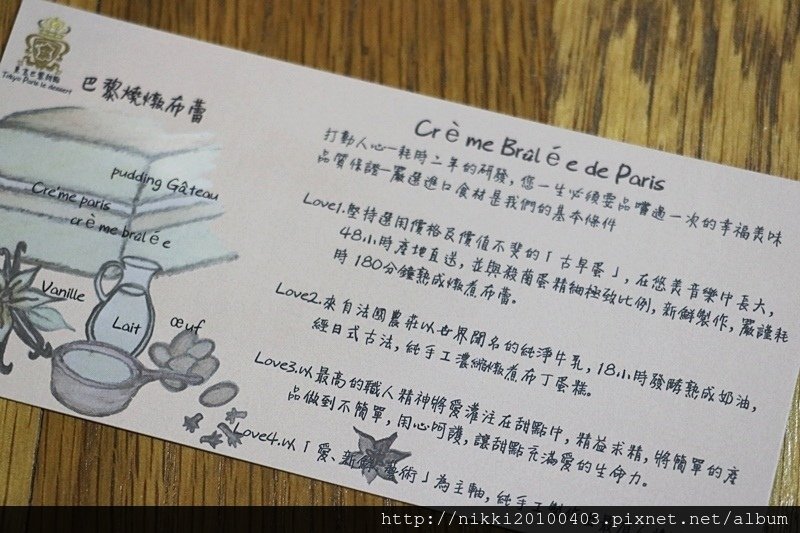 東京巴黎甜點
Tokyo Paris le dessert
巴黎燒燉布蕾
pudding Gâteau
Crème paris
crème brûlée
Vanille
Lait
œuf
Crème Brûlée de Paris
打動人心—耗時二年的研發，您一生必須要品嚐過一次的幸福美味
品質保證—嚴選進口食材是我們的基本條件
Love1.堅持選用價格及價值不斐的「古早蛋」，在悠美音樂中長大，
48小時產地直送，並與殺菌蛋精細極致比例，新鮮製作，嚴謹耗
時180分鐘熟成燉煮布蕾。
Love2.來自法國農莊以世界聞名的純淨牛乳，18小時發酵熟成奶油，
經日式古法，純手工濃縮燉煮布丁蛋糕。
Love3.以最高的職人精神將愛灌注在甜點中，精益求精，將簡單的產
品做到不簡單，用心呵護，讓甜點充滿愛的生命力。
Love4.以「愛、新鮮、藝術」為主軸，純手工
http://nikki20100403.pixnet.net/album